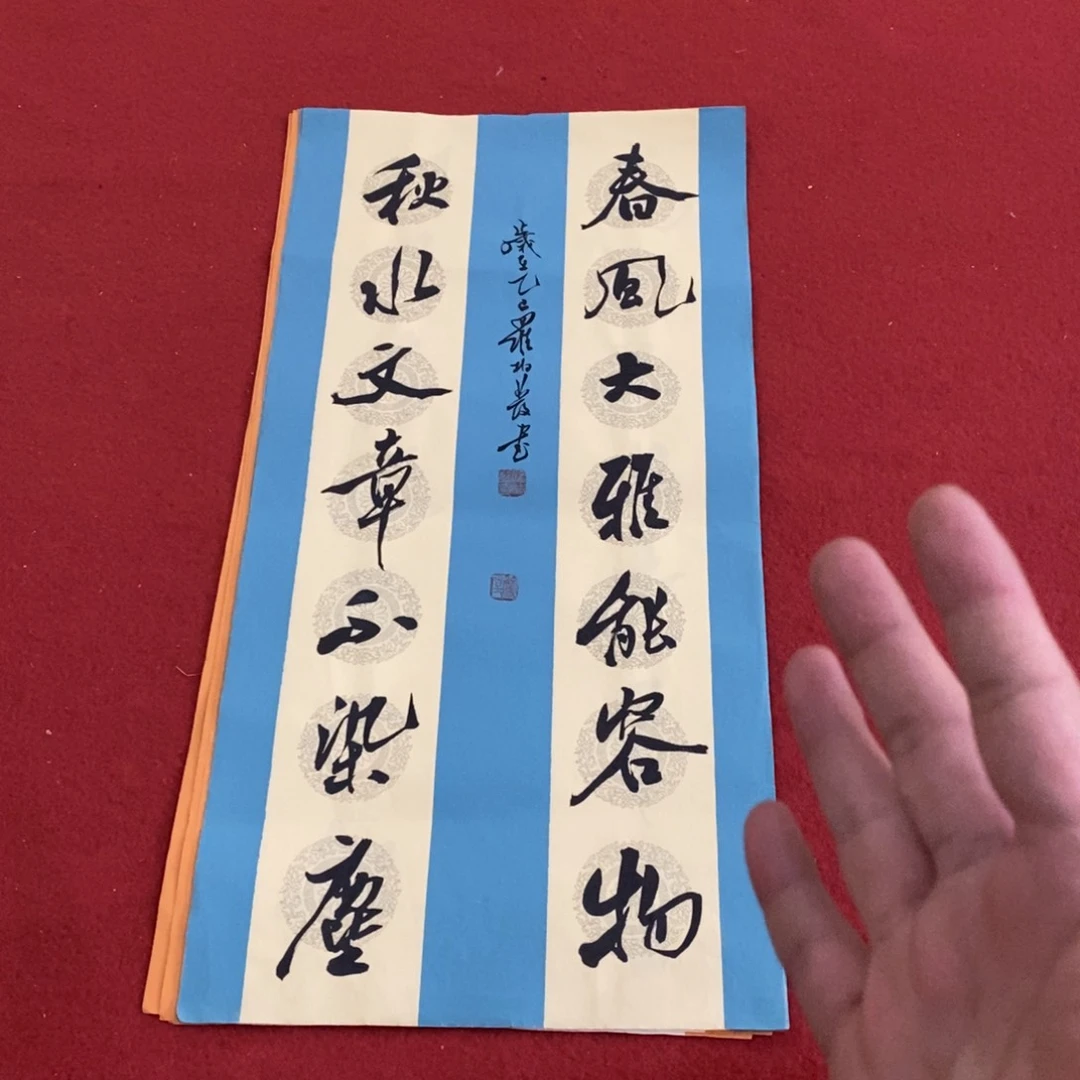 春風大雅能容物
秋水文章不染塵
歲在乙巳羅
書